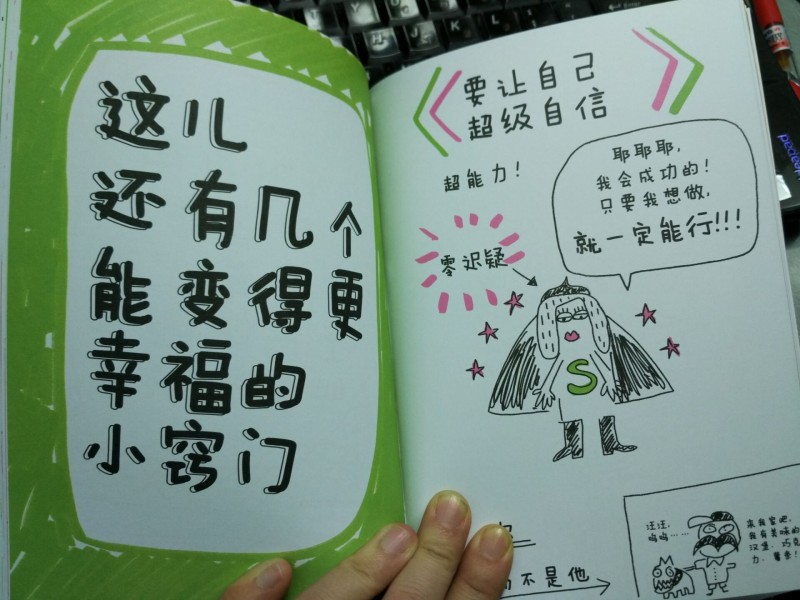 这儿
还有几个
能变得更
幸福的
小窍门
要让自己
超级自信
超能力!
耶耶耶,
我会成功的!
只要我想做,
就一定能行!!!
零迟疑
S
汪汪,
呜呜……
来我家吧,
我有美味的
汉堡、巧克
力、薯条!
不是他